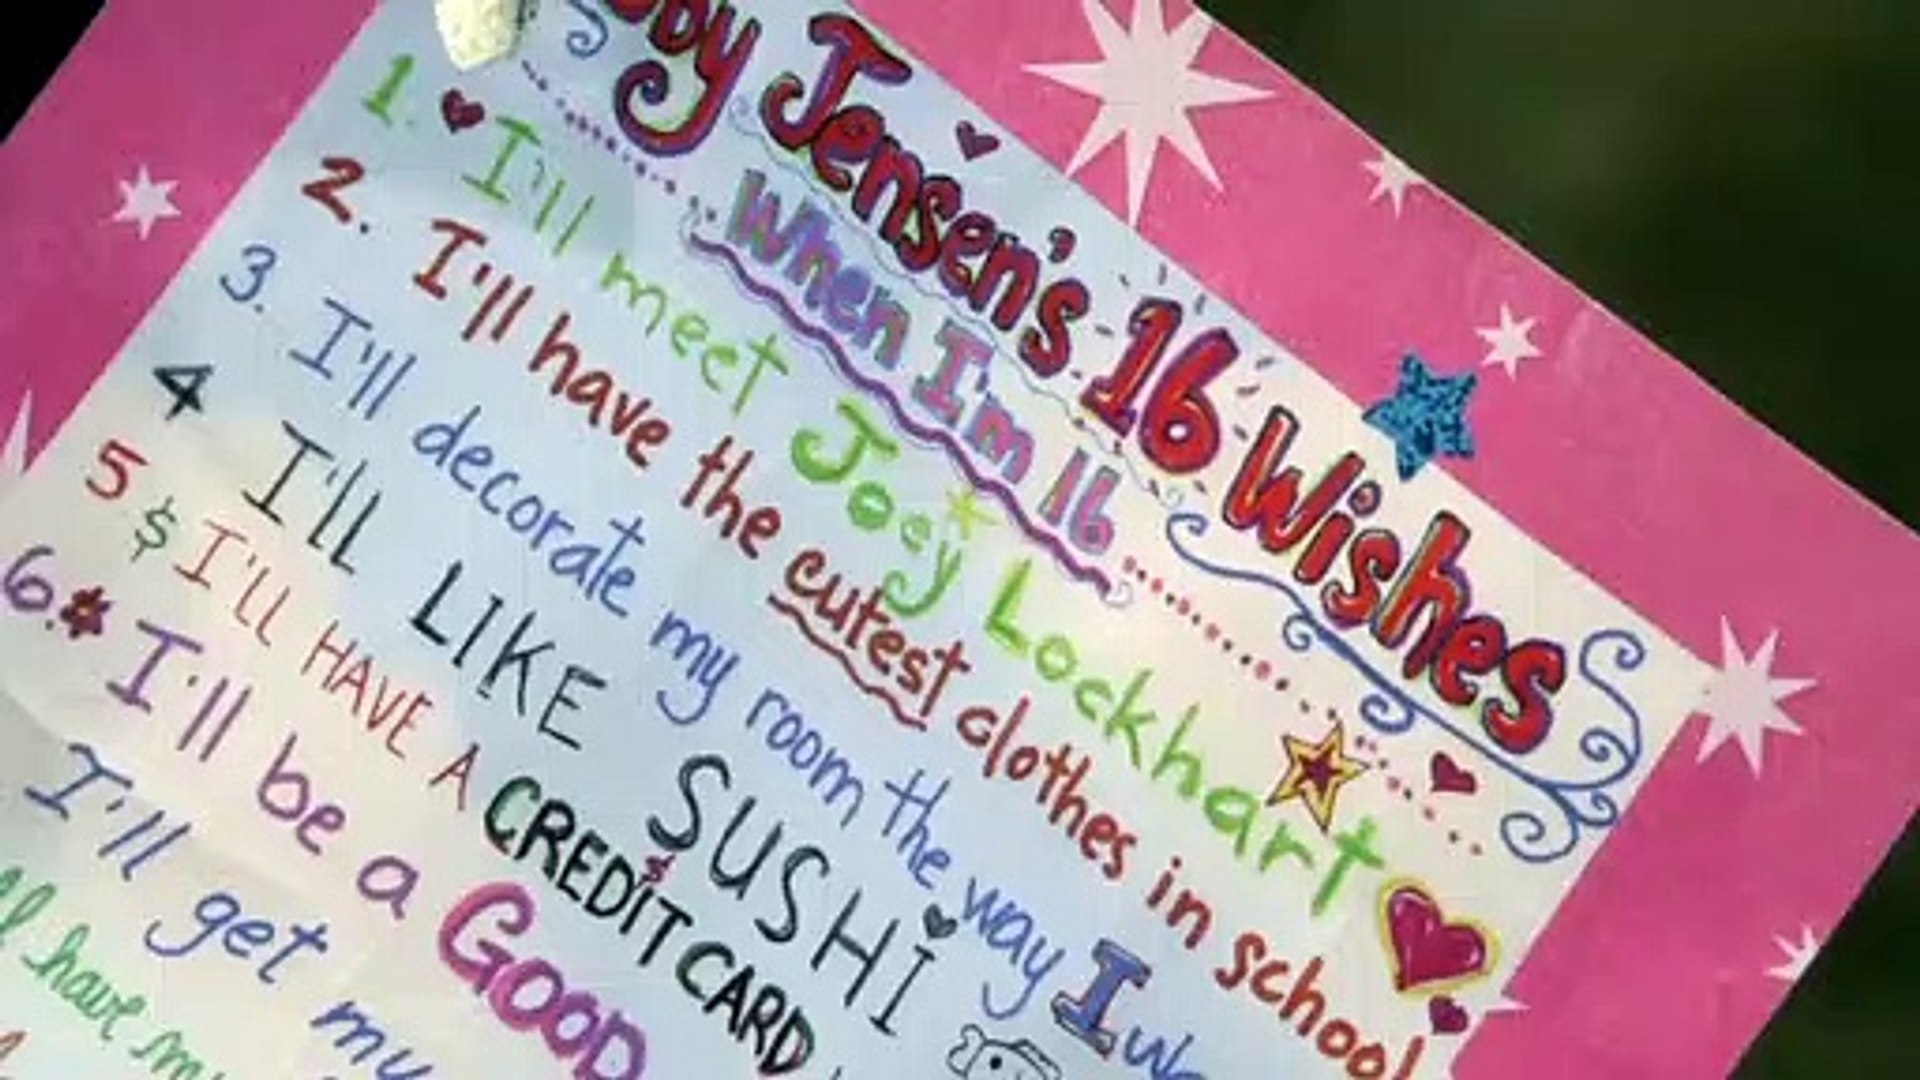 by Jensen's 16 Wishes
When I'm 16
1. I'll meet Joey Lockhart
2. I'll have the cutest clothes in school
3. I'll decorate my room the way I
4 I'LL LIKE SUSHI
5 $ I'LL HAVE A CREDIT CARD
6. I'll be a GOOD
I'll get my
have my